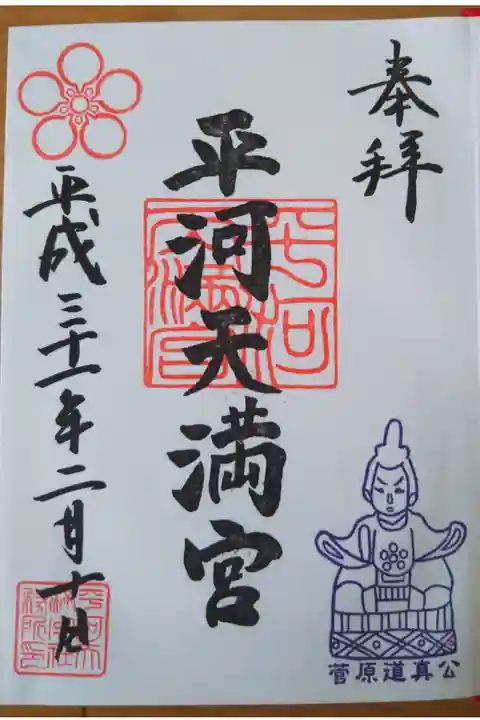 奉拝
平河天満宮
平成三十一年二月十日
菅原道真公